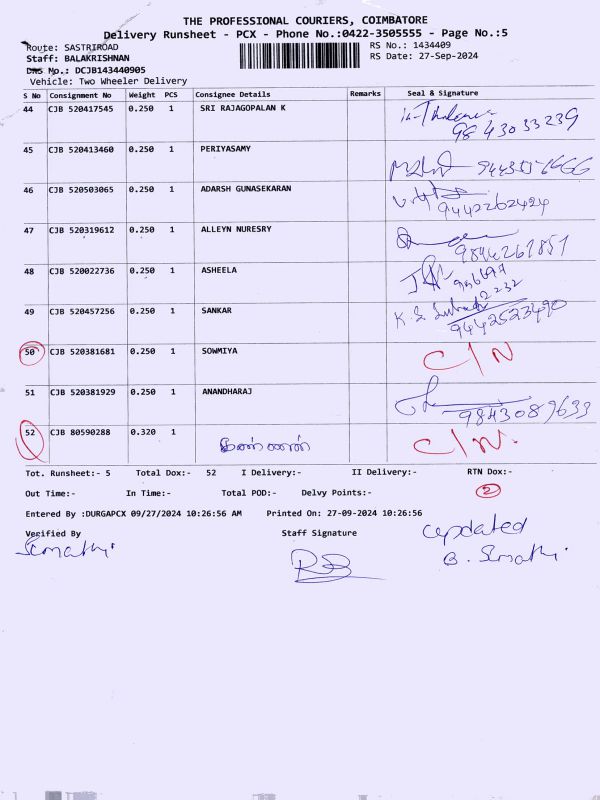 THE PROFESSIONAL COURIERS, COIMBATORE
Delivery Runsheet - PCX - Phone No.:0422-3505555 - Page No.:5
Route: SASTRIROAD
RS No.: 1434409
Staff: BALAKRISHNAN
RS Date: 27-Sep-2024
DRS No.: DCJB143440905
Vehicle: Two Wheeler Delivery
S No Consignment No Weight PCS Consignee Details Remarks Seal & Signature
44 CJB 520417545 0.250 1 SRI RAJAGOPALAN K
9843033239
45 CJB 520413460 0.250 1 PERIYASAMY
46 CJB 520503065 0.250 1 ADARSH GUNASEKARAN
9442262424
47 CJB 520319612 0.250 1 ALLEYN NURESRY
9844261851
48 CJB 520022736 0.250 1 ASHEELA
49 CJB 520457256 0.250 1 SANKAR
9442523490
50 CJB 520381681 0.250 1 SOWMIYA C/N
51 CJB 520381929 0.250 1 ANANDHARAJ
9843089633
52 CJB 80590288 0.320 1 கண்ணன் C/N.
Tot. Runsheet:- 5 Total Dox:- 52 I Delivery:- II Delivery:- RTN Dox:-
Out Time:- In Time:- Total POD:- Delvy Points:- 2
Entered By :DURGAPCX 09/27/2024 10:26:56 AM Printed On: 27-09-2024 10:26:56
Verified By Staff Signature updated